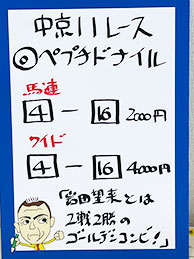 中京11レース
◎ペプチドナイル
馬連
4 − 16 2000円
ワイド
4 − 16 4000円
「岩田望来とは
2戦2勝の
ゴールデンコンビ！」